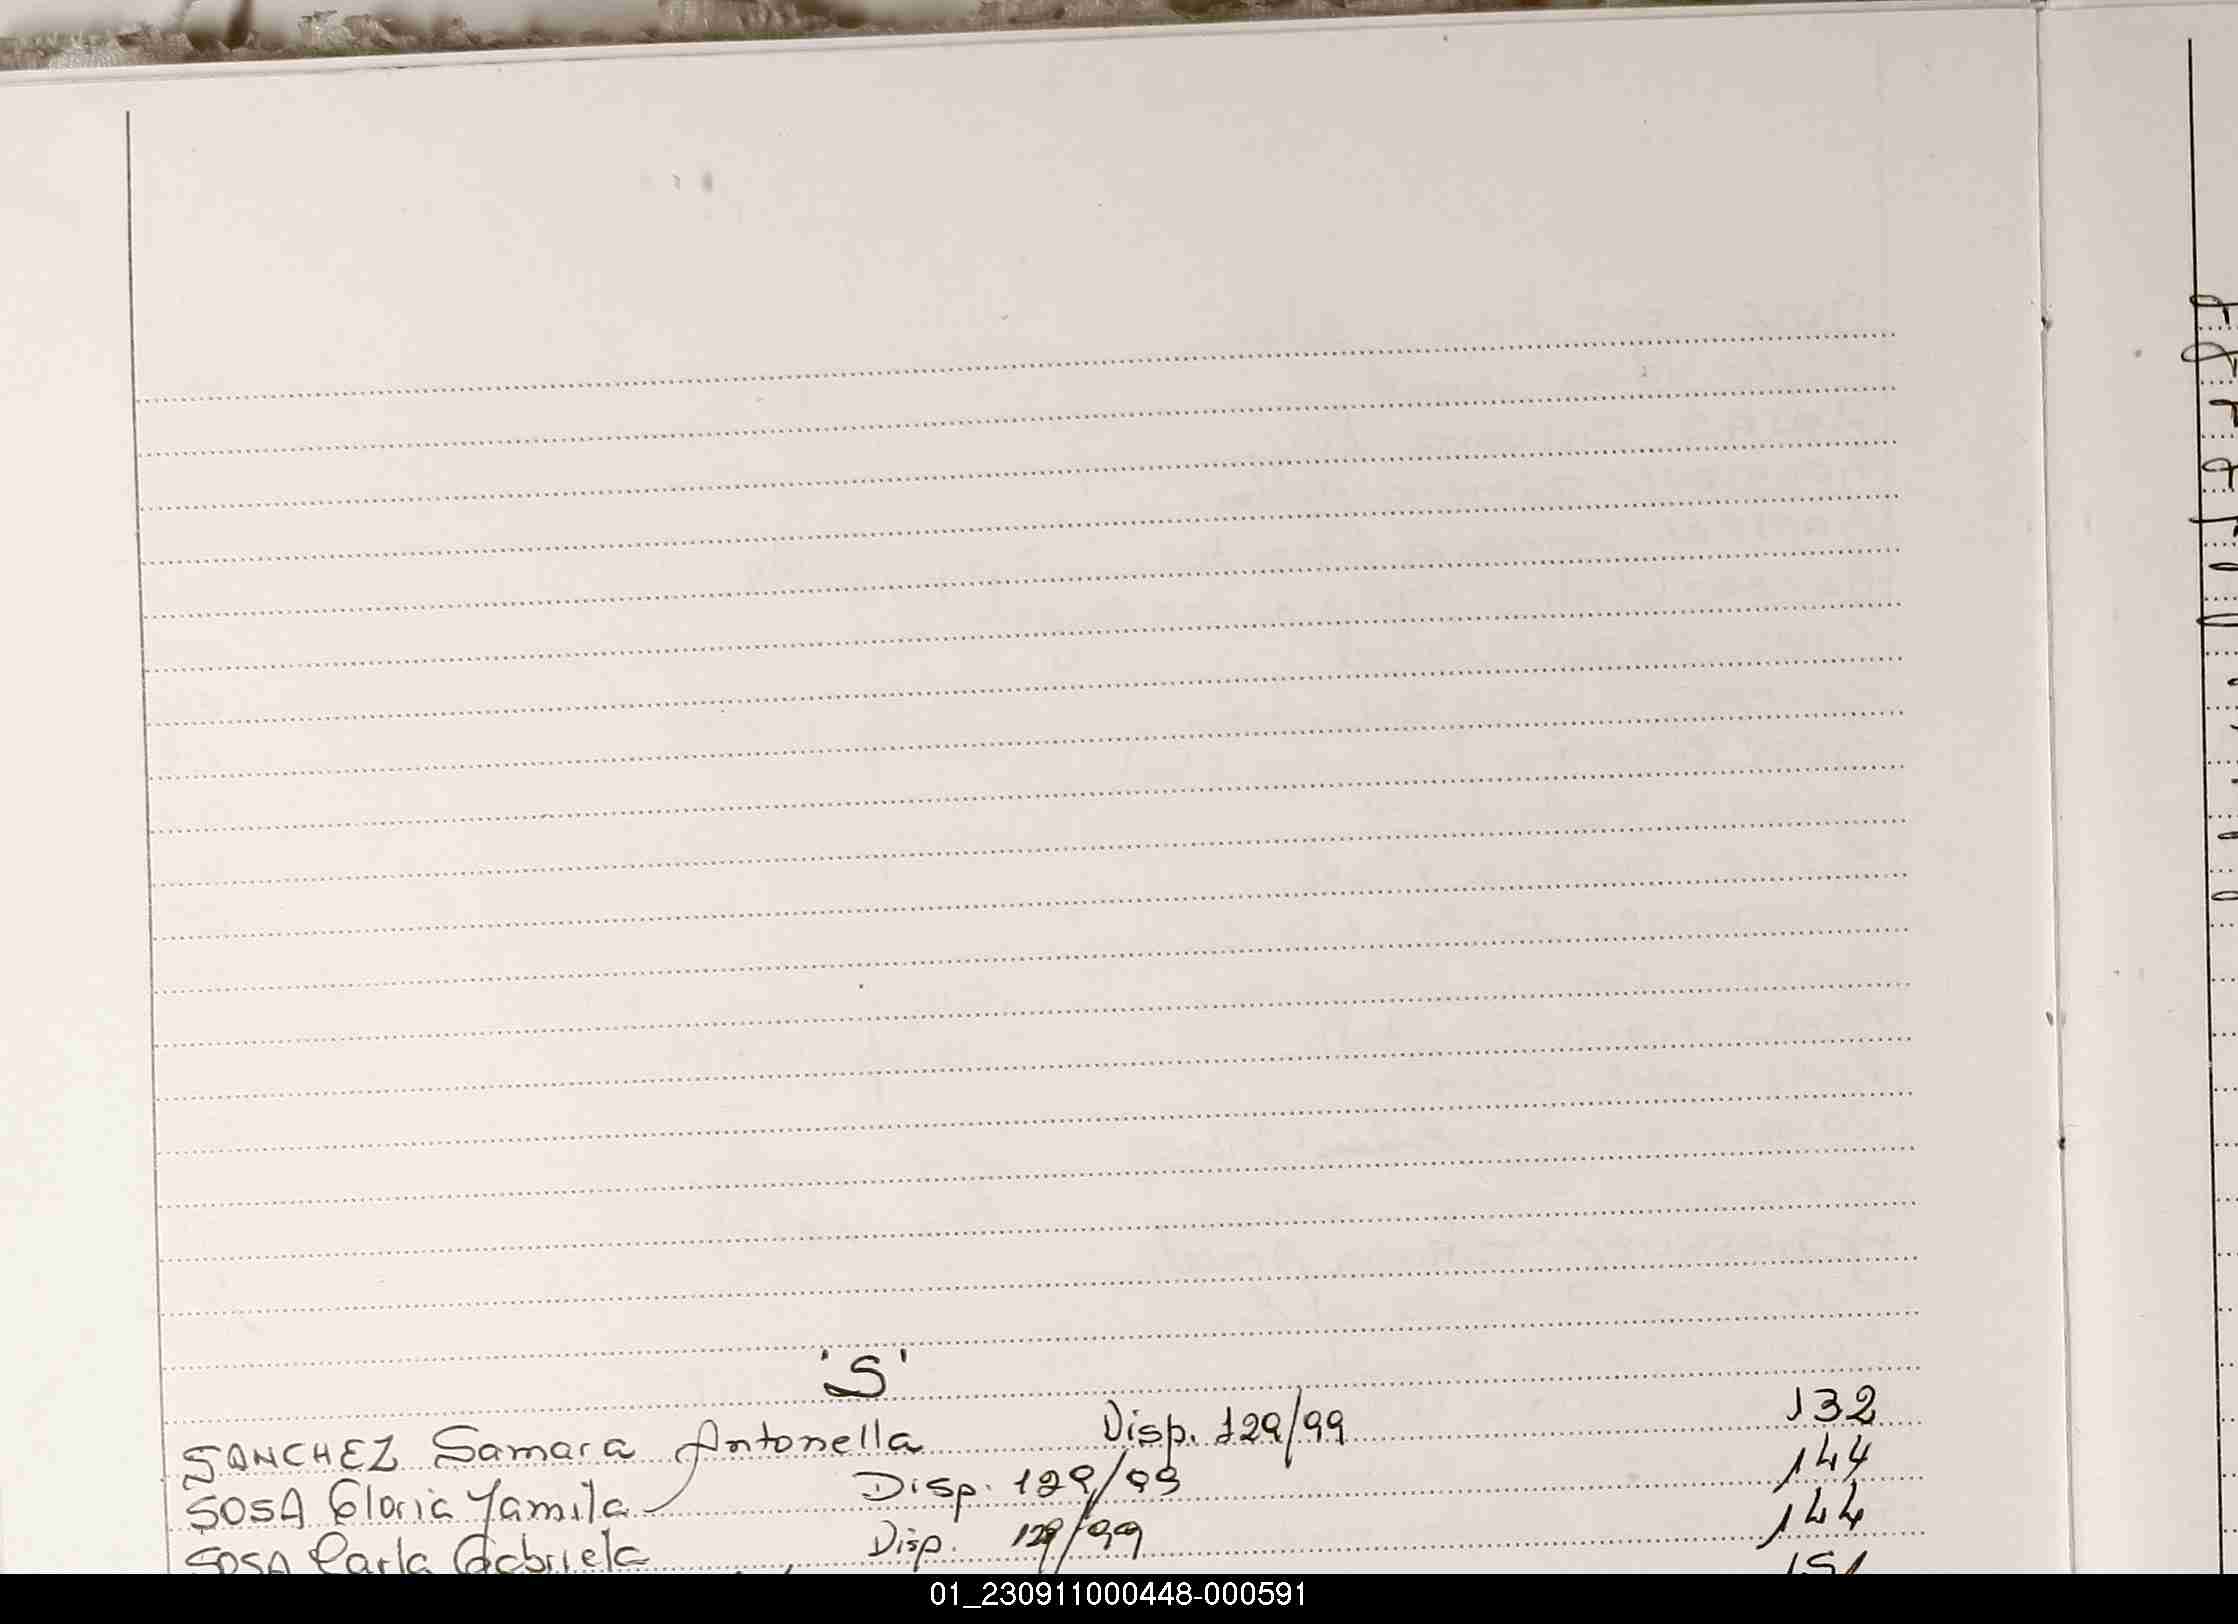 'S'
SANCHEZ Samara Antonella Disp. 129/99 132
SOSA Gloria Yamila Disp. 129/99 144
SOSA Carla Gabriela Disp. 129/99 144
151
01_230911000448-000591